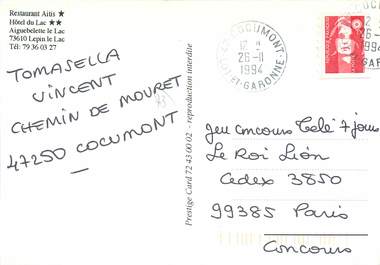 Restaurant Aitis ★
Hôtel du Lac ★★
Aiguebelette le Lac
73610 Lepin le Lac
Tél: 79 36 03 27
TOMASELLA
VINCENT
CHEMIN DE MOURET
47250 COCUMONT
Prestige Card 72 43 00 02 - reproduction interdite
COCUMONT
12 H
26-11
1994
LOT-ET-GARONNE
26-11
1994
Jeu concours Télé 7 jours
Le Roi Lion
Cedex 3850
99385 Paris
Concours